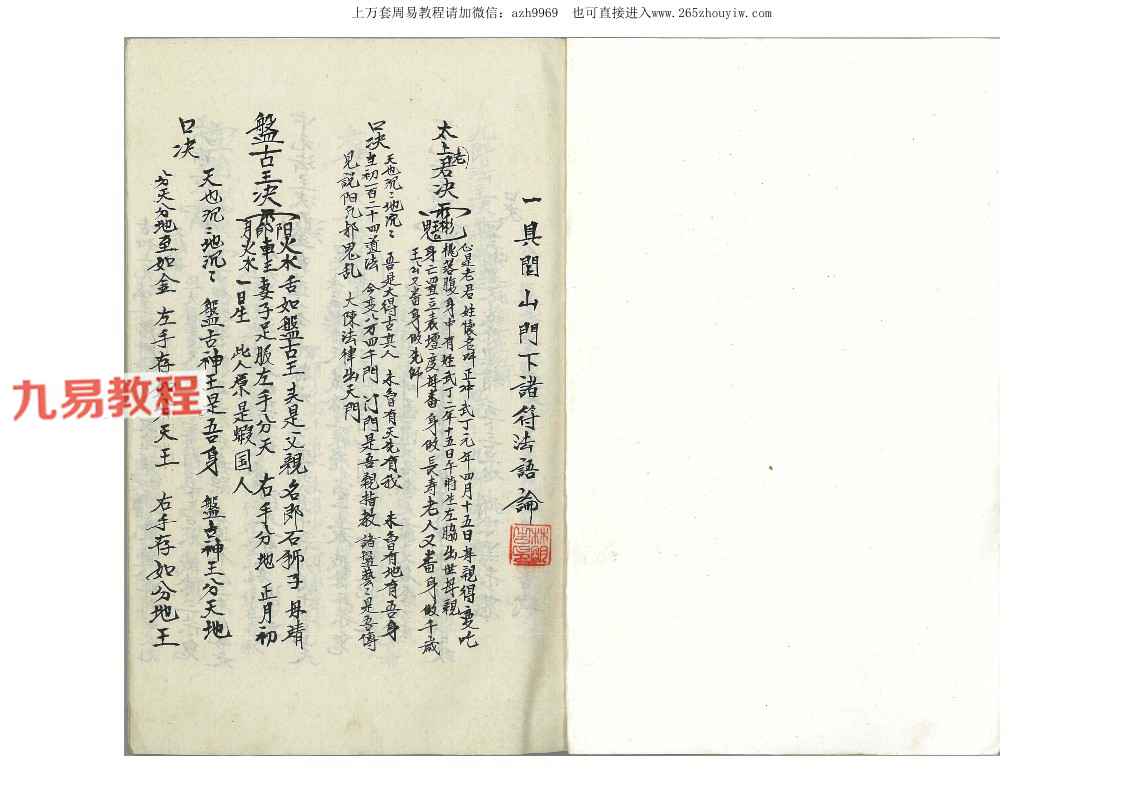 上万套周易教程请加微信：azh9969　也可直接进入www.265zhouyiw.com
一具閭山門下諸符法語論
太上老君决
心是老君姓懷名 正神武丁元年四月十五日母親得受吃
桃落腹身中有姓武丁二年十五日午時生左脇出世母親
身亡置立表壇度母番身做長寿老人又番身做千歲
王公又番身做先师
口决
天也沉沉地沉沉 吾是大得古真人 未曾有天先有我 未曾有地有吾身
当初一百二十四道法 今变八万四千門 门門是吾親指教 諸般藝藝是吾傳
見説阳凡邪鬼乱 大陳法律出天門
盤古王决
阳火水舌如盤古王 夫是父親名郎石狮子 母靖
妻子足服左手分天 右手分地 正月初
月火水一日生 此人原是蝦国人
口决
天也沉沉地沉沉 盤古神王是吾身 盤古神王分天地
分天分地至如金 左手存 天王 右手存如分地王
九易教程